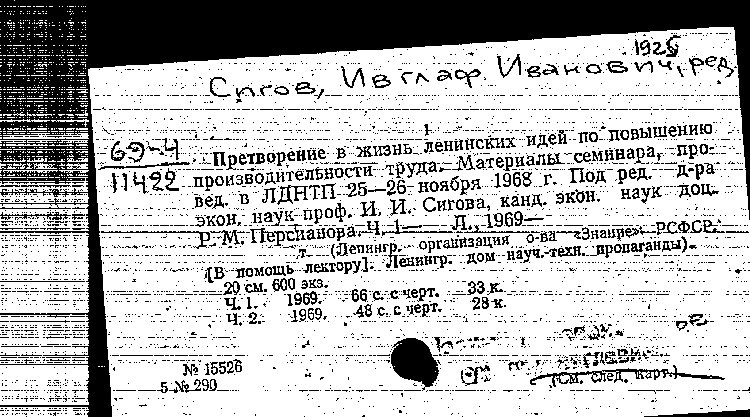 1925
Сигов, Ивглаф Иванович, ред.
1
69-4
11422
Претворение в жизнь ленинских идей по повышению
производительности труда. Материалы семинара, про-
вед. в ЛДНТП 25—26 ноября 1968 г. Под ред. д-ра
экон. наук проф. И. И. Сигова, канд. экон. наук доц.
Р. М. Персианова. Ч. 1— Л., 1969—
т. (Ленингр. организация о-ва «Знание» РСФСР.
[В помощь лектору]. Ленингр. дом науч.-техн. пропаганды).
20 см. 600 экз.
Ч. 1. 1969. 66 с. с черт. 33 к.
Ч. 2. 1969. 48 с. с черт. 28 к.
№ 15526
5 № 290
(См. след. карт.)